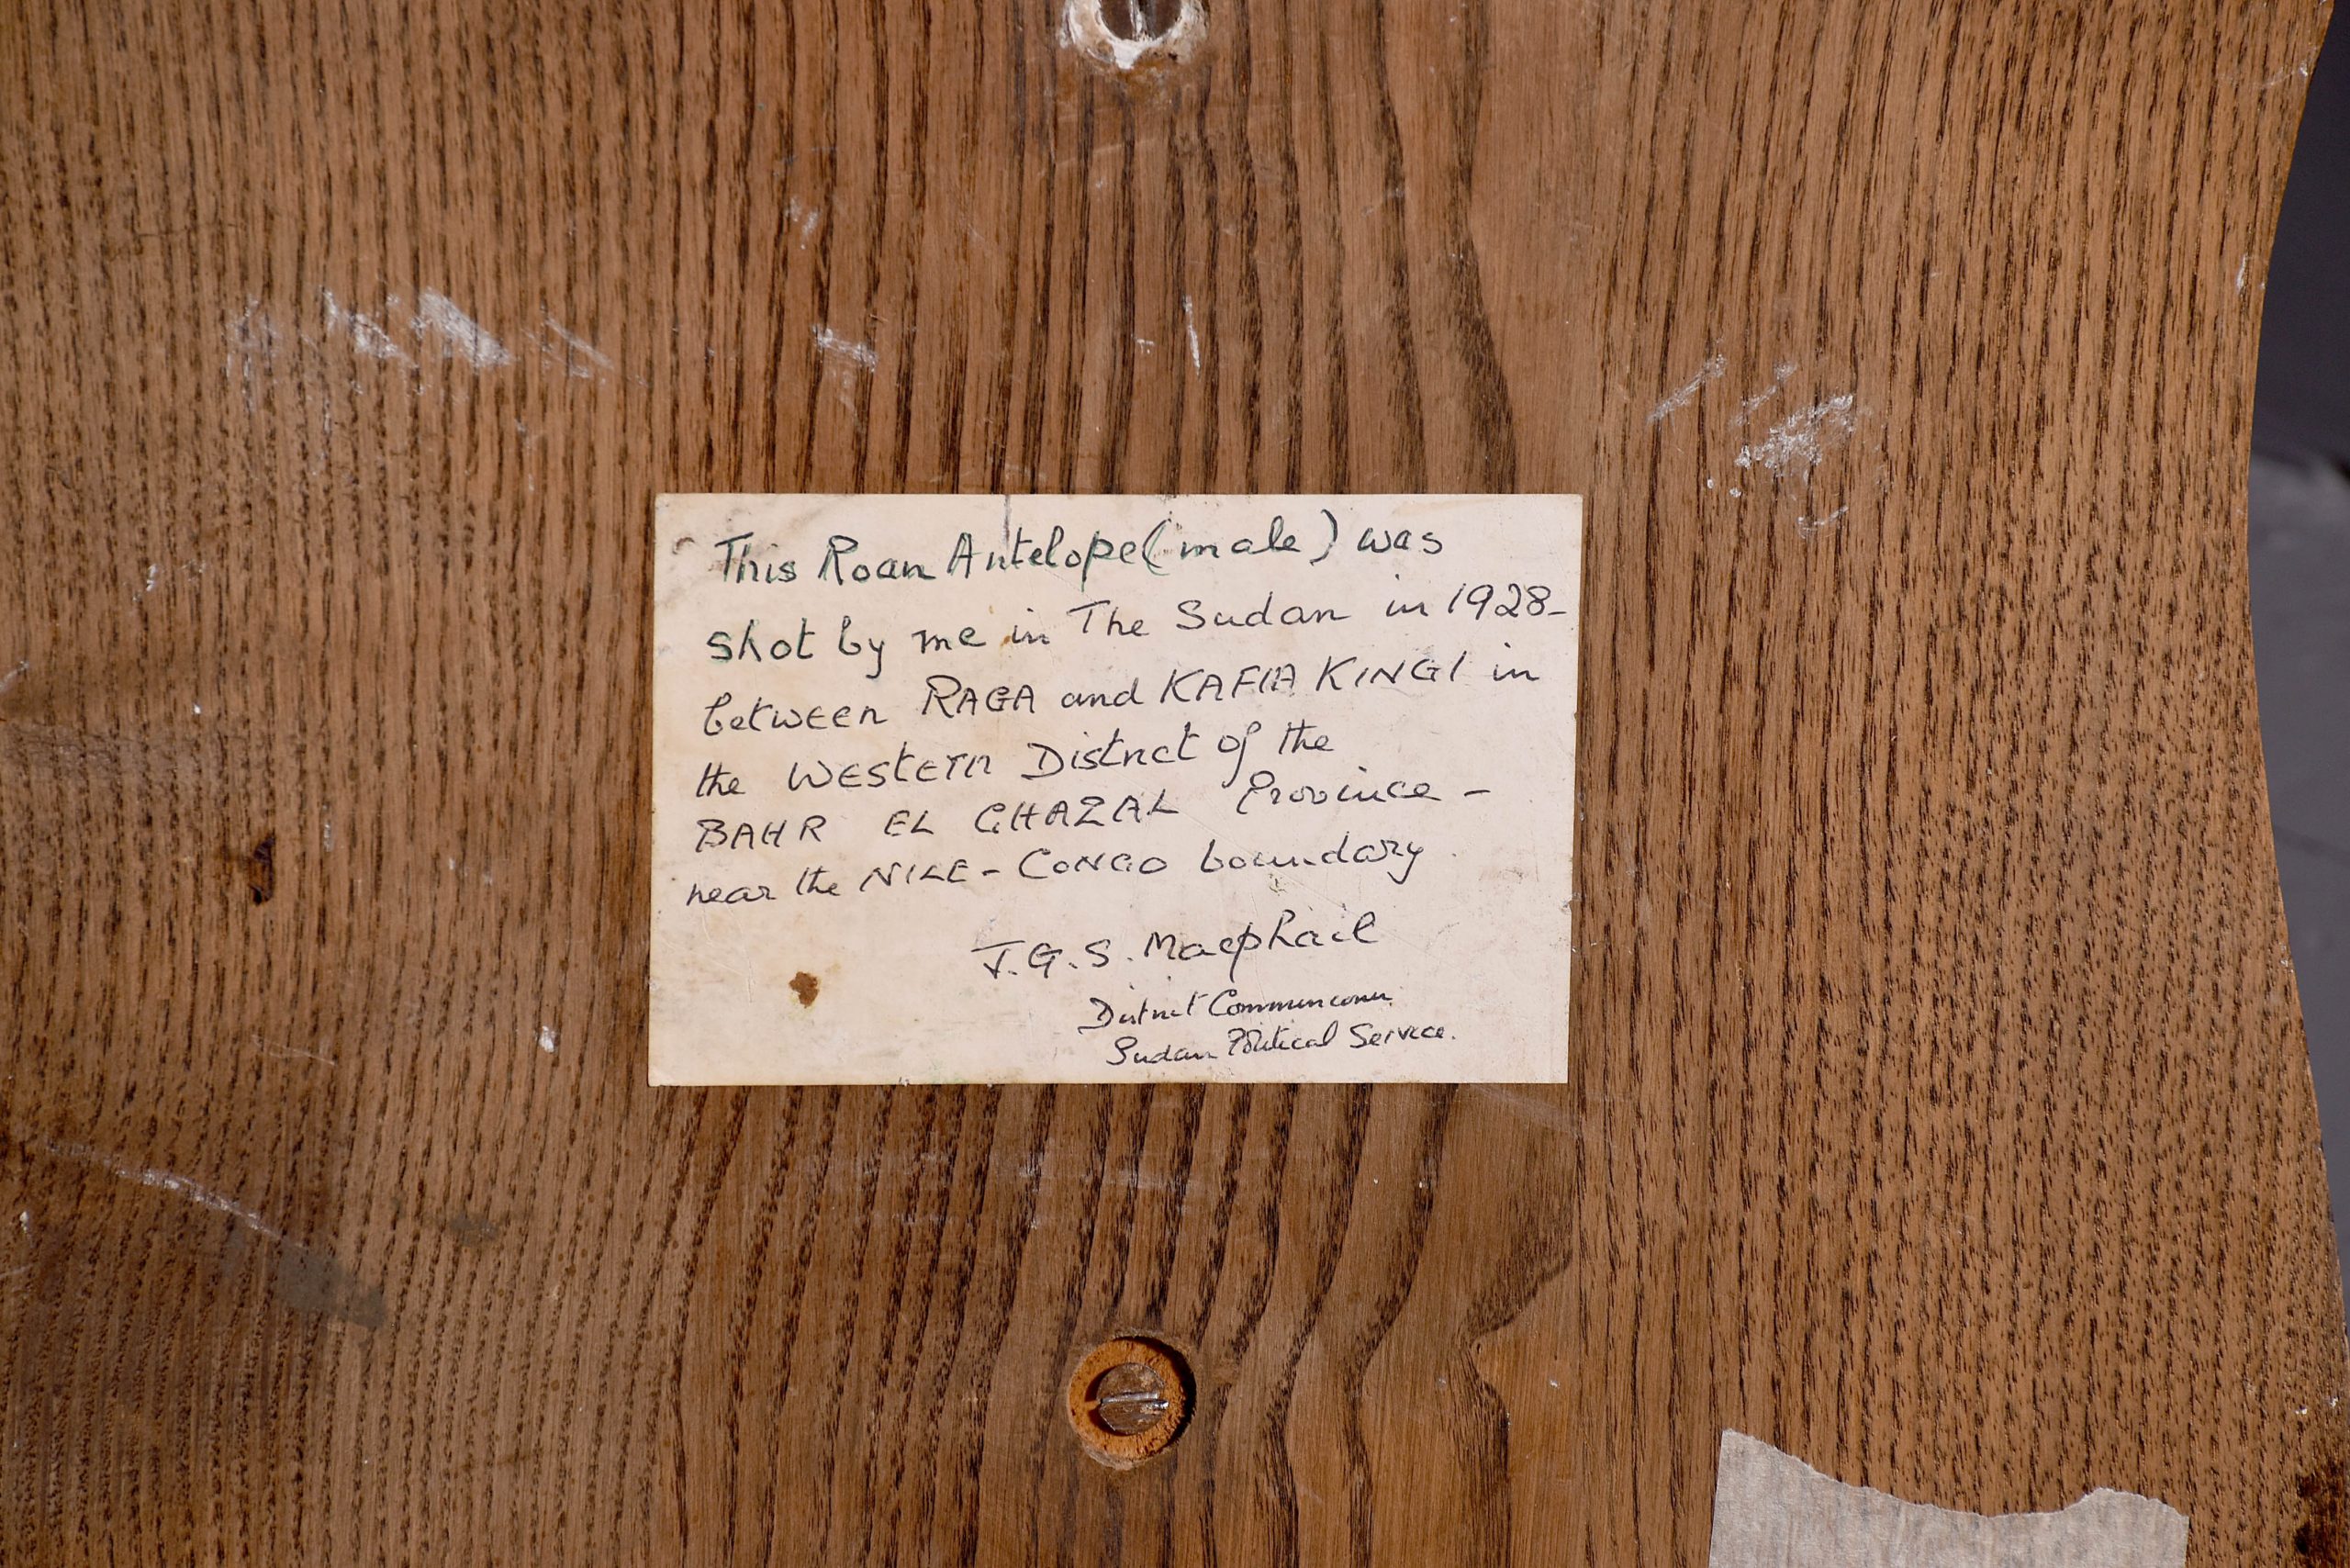 This Roan Antelope (male) was
shot by me in The Sudan in 1928-
between RAGA and KAFIA KINGI in
the WESTERN District of the
BAHR EL GHAZAL Province -
near the NILE - CONGO boundary
J.G.S. Macphail
District Commissioner
Sudan Political Service.